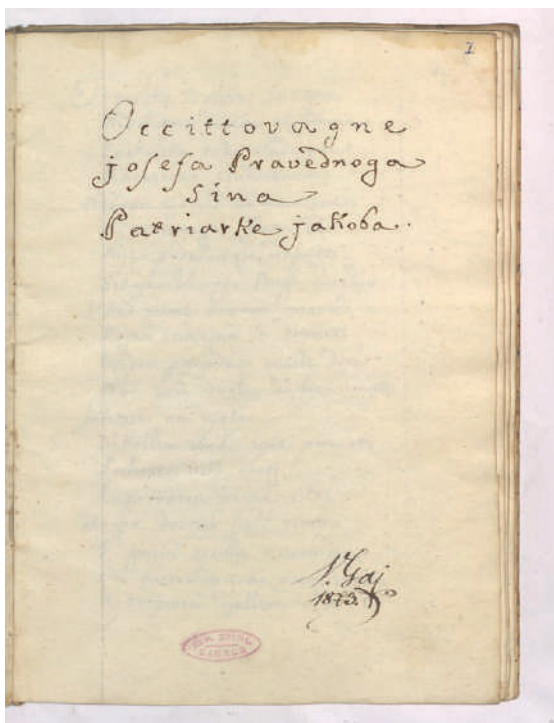 1
Occittovagne
josefa Pravednoga
sina
Patriarke jakoba.
V. Gaj
1873.